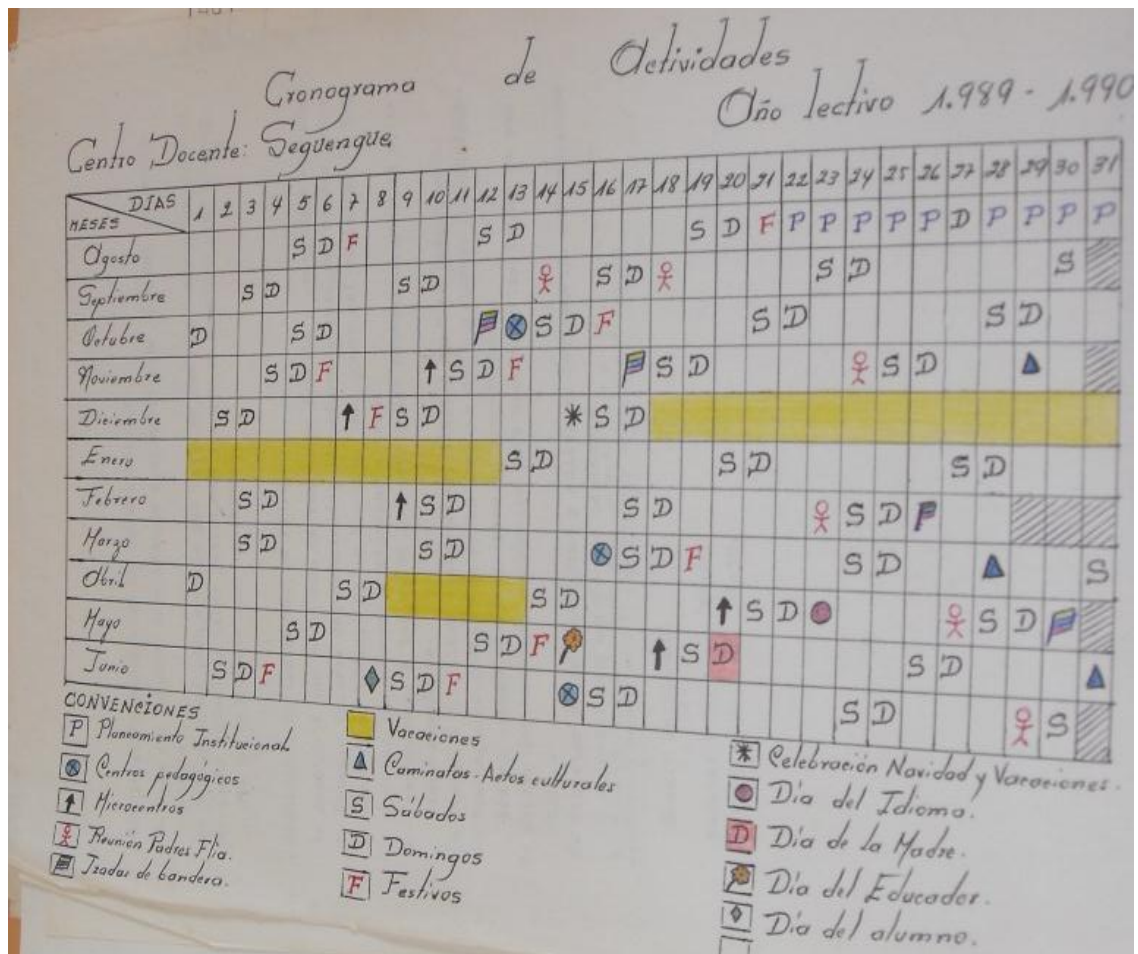 Cronograma de Actividades
Año lectivo 1.989 - 1.990
Centro Docente: Seguengue
DIAS 1 2 3 4 5 6 7 8 9 10 11 12 13 14 15 16 17 18 19 20 21 22 23 24 25 26 27 28 29 30 31
MESES
Agosto S D F S D S D F P P P P P D P P P P
Septiembre S D S D S D S D S
Octubre D S D S D F S D S D
Noviembre S D F S D F S D S D
Diciembre S D F S D S D
Enero S D S D S D
Febrero S D S D S D S D
Marzo S D S D S D F S D S
Abril D S D S D S D S D
Mayo S D S D F S D S D
Junio S D F S D F S D S D S
CONVENCIONES
P Planeamiento Institucional
Centros pedagógicos
Microcentros
Reunión Padres Flia.
Izadas de bandera.
Vacaciones
Caminatas-Actos culturales
S Sábados
D Domingos
F Festivos
Celebración Navidad y Vacaciones.
Día del Idioma.
D Día de la Madre.
Día del Educador.
Día del alumno.